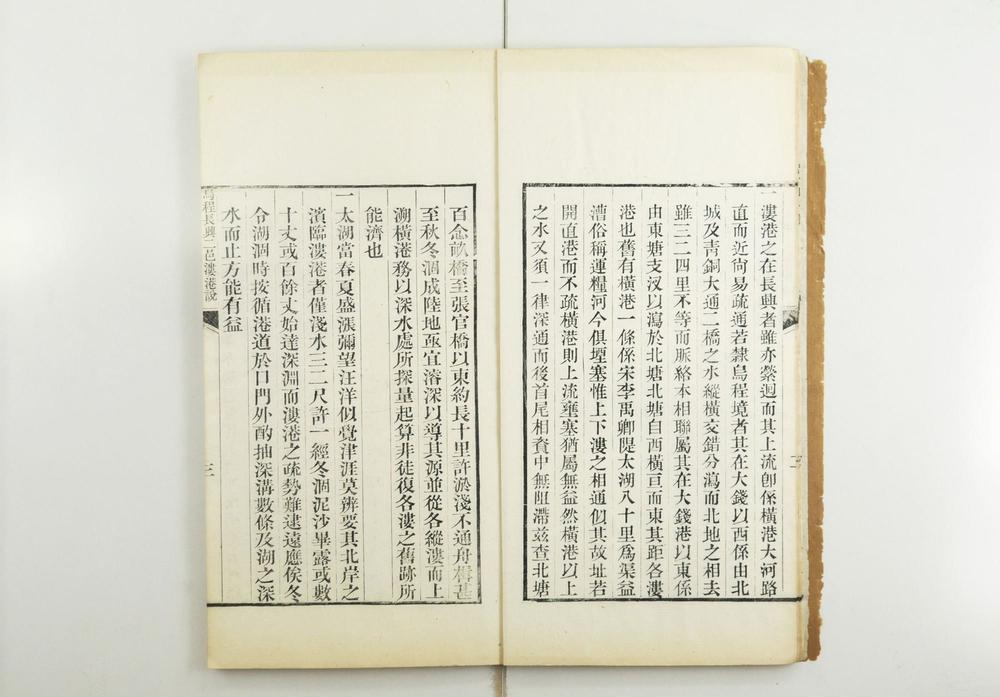 一漊港之在長興者雖亦縈迴而其上流卽係橫港大河路
直而近尙易疏通若隸烏程境者其在大錢以西係由北
城及靑銅大通二橋之水縱橫交錯分瀉而北地之相去
雖三二四里不等而脈絡本相聯屬其在大錢港以東係
由東塘支汊以瀉於北塘北塘自西橫亘而東其距各漊
港也舊有橫港一條係宋李禹卿隄太湖八十里爲渠益
漕俗稱運糧河今俱堙塞惟上下漊之相通似其故址若
開直港而不疏橫港則上流壅塞猶屬無益然橫港以上
之水又須一律深通而後首尾相資中無阻滯玆查北塘
三
百念畝橋至張官橋以東約長十里許淤淺不通舟楫甚
至秋冬涸成陸地亟宜濬深以導其源並從各縱漊而上
溯橫港務以深水處所探量起算非徒復各漊之舊跡所
能濟也
一太湖當春夏盛漲彌望汪洋似覺津涯莫辨要其北岸之
濱臨漊港者僅淺水三二尺許一經冬涸泥沙畢露或數
十丈或百餘丈始達深淵而漊港之疏勢難逮遠應俟冬
令湖涸時按循港道於口門外酌抽深溝數條及湖之深
水而止方能有益
烏程長興二邑漊港說
三